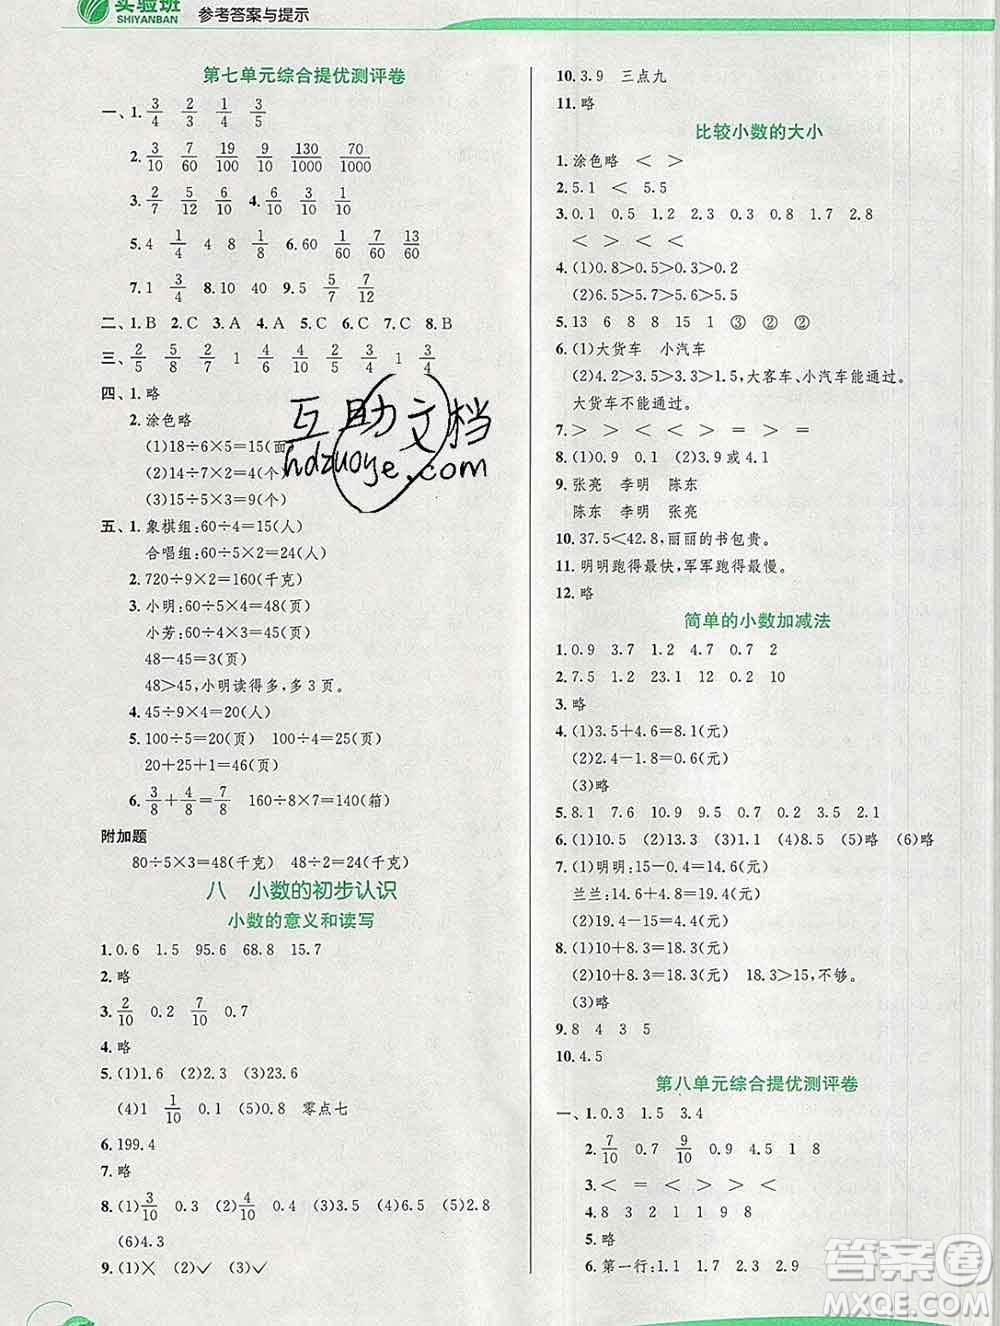 实验班
SHIYANBAN
参考答案与提示
第七单元综合提优测评卷
一、1. 3/4 2/3 1/4 3/5
2. 3/10 7/60 19/100 9/10 130/1000 70/1000
3. 2/7 5/12 6/10 4. 6/10 3/10
5. 4 1/4 4 8 1/8 6. 60 1/60 7/60 13/60
7. 1 3/4 8. 10 40 9. 5 5/7 7/12
二、1. B 2. C 3. A 4. A 5. C 6. B 7. C 8. B
三、2/5 5/8 2/7 1 4/6 2/8 5/5 3/4 1 3/4
四、1. 略
2. 涂色略
(1)18÷6×5=15(面
(2)14÷7×2=4(个
(3)15÷5×3=9(个)
五、1. 象棋组:60÷4=15(人)
合唱组:60÷5×2=24(人)
2. 720÷9×2=160(千克)
3. 小明:60÷5×4=48(页)
小芳:60÷4×3=45(页)
48-45=3(页)
48>45,小明读得多,多3页。
4. 45÷9×4=20(人)
5. 100÷5=20(页) 100÷4=25(页)
20+25+1=46(页)
6. 3/8+4/8=7/8 160÷8×7=140(箱)
附加题
80÷5×3=48(千克) 48÷2=24(千克)
八 小数的初步认识
小数的意义和读写
1. 0.6 1.5 95.6 68.8 15.7
2. 略
3. 2/10 0.2 7/10 0.7
4. 略
5. (1)1.6 (2)2.3 (3)0.9
(4)1 1/10 0.1 (5)0.8 零点七
6. 199.4
7. 略
8. (1)3/10 0.3 (2)4/10 0.4 (3)3.5 (4)6.5 (5)2.8
(6)4.3
9. (1)× (2)✓ (3)✓
10. 3.9 三点九
11. 略
比较小数的大小
1. 涂色略 < >
2. 5.1 < 5.5
3. 0.1 0.5 1.2 2.3 0.3 0.8 1.7 2.8
< > < <
4. (1)0.8>0.5>0.3>0.2
(2)6.5>5.7>5.6>5.5
5. 13 6 8 8 15 1 ③ ② ②
6. (1)大货车 小汽车
(2)4.2>3.5>3.3>1.5,大客车、小汽车能通过。
大货车不能通过。
7. > > > < < = > <
8. (1)0.9 0.1 (2)3.9或4.1
9. 张亮 李明 陈东
陈东 李明 张亮
10. 37.5<42.8,丽丽的书包贵。
11. 明明跑得最快,军军跑得最慢。
12. 略
简单的小数加减法
1. 0.9 3.7 1.2 4.7 0.7 2
2. 7.5 1.8 23.1 12 0.2 10
3. 略
4. (1)3.5+4.6=8.1(元)
(2)2.4-1.8=0.6(元)
(3)略
5. 8.1 7.6 10.9 9.5 0.7 0.2 3.5 2.1
6. (1)10.5 (2)13.3 (3)1.1 (4)8.9 (5)略 (6)略
7. (1)明明:15-0.4=14.6(元)
兰兰:14.6+4.8=19.4(元)
(2)19.4-15=4.4(元)
8. (1)10+8.3=18.3(元)
(2)10+8.3=18.3(元) 18.3>15,不够。
(3)略
9. 8 4 3 5
10. 4.5
第八单元综合提优测评卷
一、1. 0.3 1.5 3.4
2. 7/10 0.7 9/10 0.9 4.5 1 8
3. < = < > > <
4. 8 3 2 1 1 9 8
5. 略
6. 第一行:1.1 2.3 2.9
互助文档
hdzuoye.com
答案圈
MXQE.COM